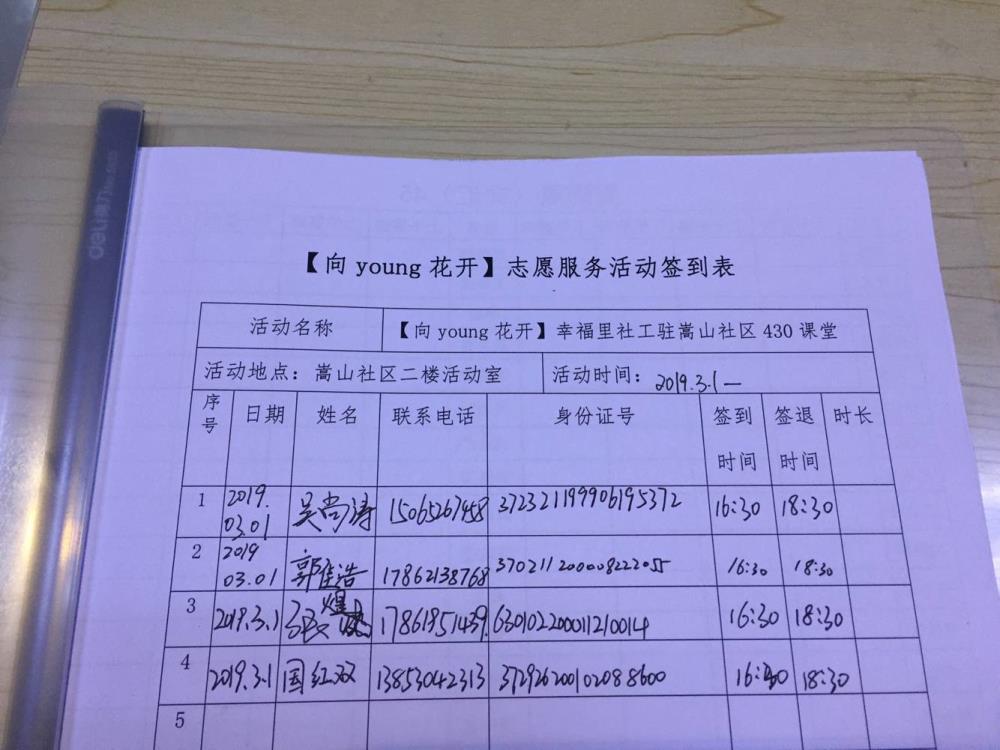 deli 得力
【向 young 花开】志愿服务活动签到表
活动名称 【向 young 花开】幸福里社工驻嵩山社区 430 课堂
活动地点：嵩山社区二楼活动室 活动时间：2019.3.1—
序号 日期 姓名 联系电话 身份证号 签到时间 签退时间 时长
1 2019.03.01 吴尚涛 15065267458 372321199906195372 16:30 18:30
2 2019 03.01 郭佳浩 17862138768 370211200008222055 16:30 18:30
3 2019.3.1 张煌 17861851439 630102200011210014 16:30 18:30
4 2019.3.1 国红双 13853042313 372926200102088600 16:30 18:30
5